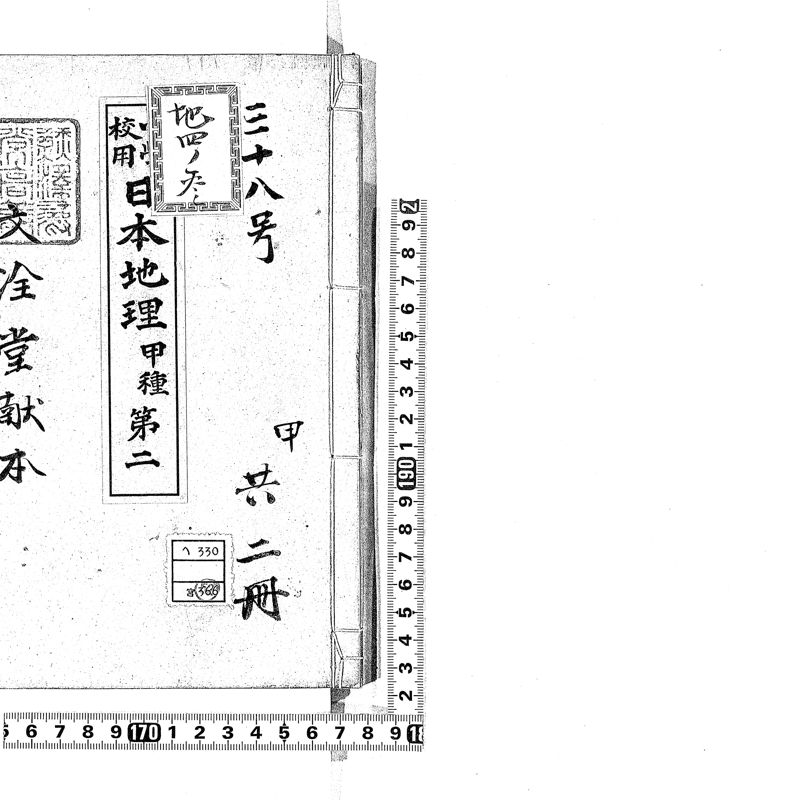 三十八号
甲
共二冊
地四ノ
校用
日本地理甲種第二
ヘ 330
366
文淦堂献本
2
9
8
7
6
5
4
3
2
1
190
9
8
7
6
5
4
3
2
6 7 8 9 170 1 2 3 4 5 6 7 8 9 18